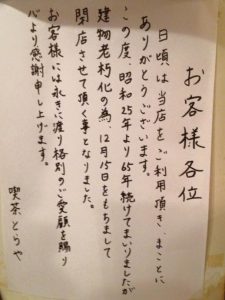 お客様各位
日頃は当店をご利用頂き、まことに
ありがとうございます。
この度、昭和25年より65年続けてまいりましたが
建物老朽化の為12月15日をもちまして
閉店させて頂く事となりました。
お客様には永きに渡り格別のご愛顧を賜り
心より感謝申し上げます。
喫茶とらや